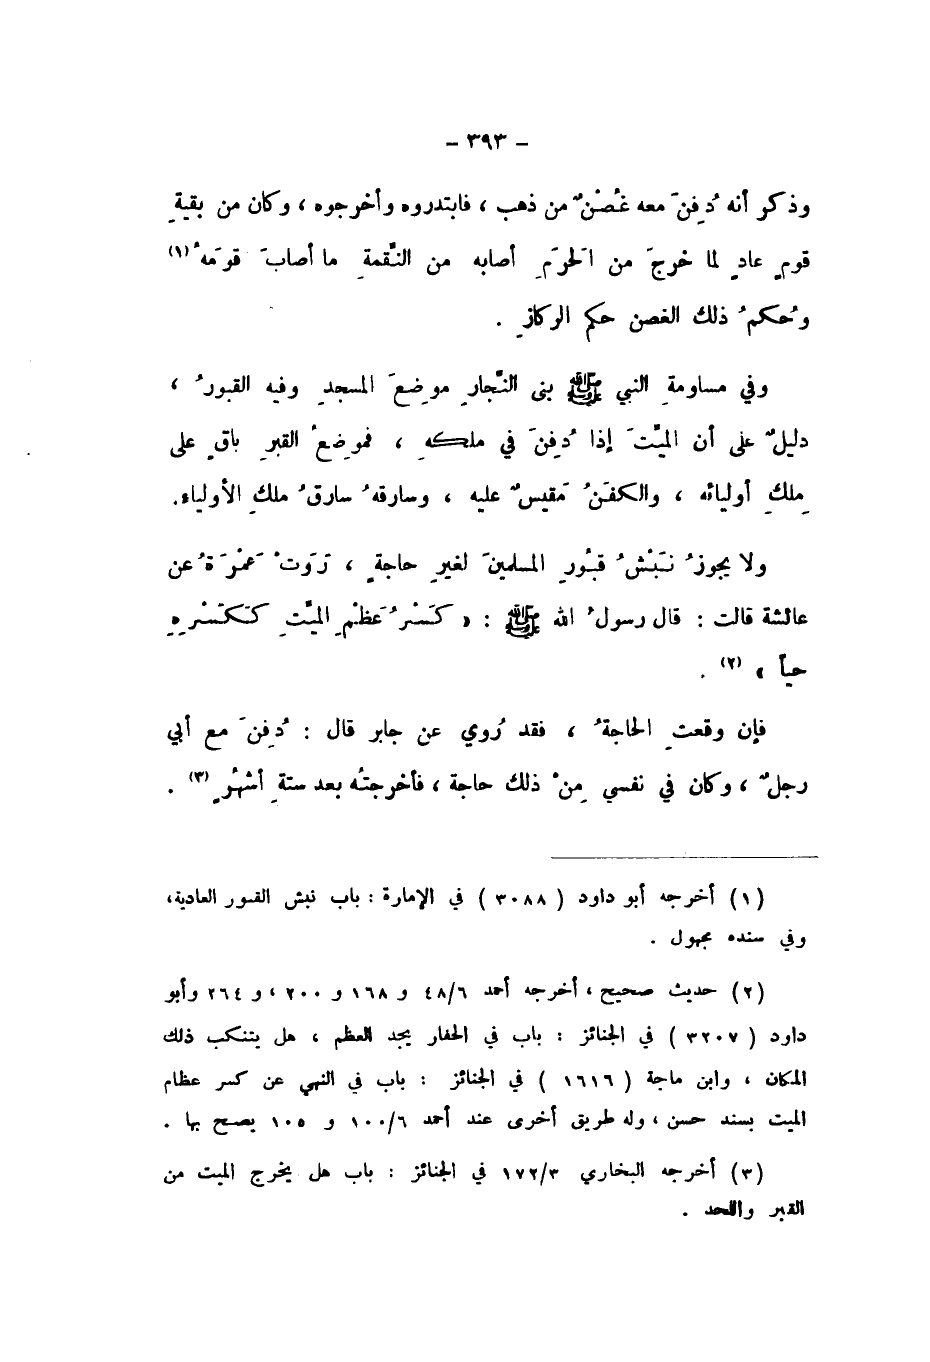 - ٣٩٣ -
وذكر أنه دُفِنَ معه غُصْنٌ من ذهب ، فابتدروه وأخرجوه ، وكان من بقيةِ
قومِ عادٍ لما خرجَ من الحَرَمِ أصابه من النَّقمةِ ما أصابَ قومَه (١)
وحُكمُ ذلك الغصن حكم الركازِ .
وفي مساومةِ النبي ﷺ بني النَّجارِ موضِعَ المسجدِ وفيه القبورُ ،
دليلٌ على أن الميِّتَ إذا دُفِنَ في ملكهِ ، فموضِعُ القبرِ باقٍ على
مِلكِ أوليائه ، والكفَنُ مَقيسٌ عليه ، وسارقهُ سارقُ ملكِ الأولياءِ.
ولا يجوزُ نَبْشُ قبُورِ المسلمينَ لغيرِ حاجةٍ ، رَوَتْ عَمْرَةُ عن
عائشة قالت : قال رسولُ الله ﷺ : « كَسْرُ عَظْمِ الميِّتِ كَكَسْرِهِ
حياً » (٢) .
فإن وقعتِ الحاجةُ ، فقد رُوي عن جابر قال : دُفِنَ مع أبي
رجلٌ ، وكان في نفسي مِنْ ذلك حاجة ، فأخرجتُه بعد ستةِ أشهُرٍ (٣) .
(١) أخرجه أبو داود ( ٣٠٨٨ ) في الإمارة : باب نبش القبور العادية،
وفي سنده مجهول .
(٢) حديث صحيح ، أخرجه أحمد ٤٨/٦ و ١٦٨ و ٢٠٠ ، و ٢٦٤ وأبو
داود ( ٣٢٠٧ ) في الجنائز : باب في الحفار يجد العظم ، هل يتنكب ذلك
المكان ، وابن ماجة ( ١٦١٦ ) في الجنائز : باب في النهي عن كسر عظام
الميت بسند حسن ، وله طريق أخرى عند أحمد ١٠٠/٦ و ١٠٥ يصح بها .
(٣) أخرجه البخاري ١٧٢/٣ في الجنائز : باب هل يخرج الميت من
القبر واللحد .